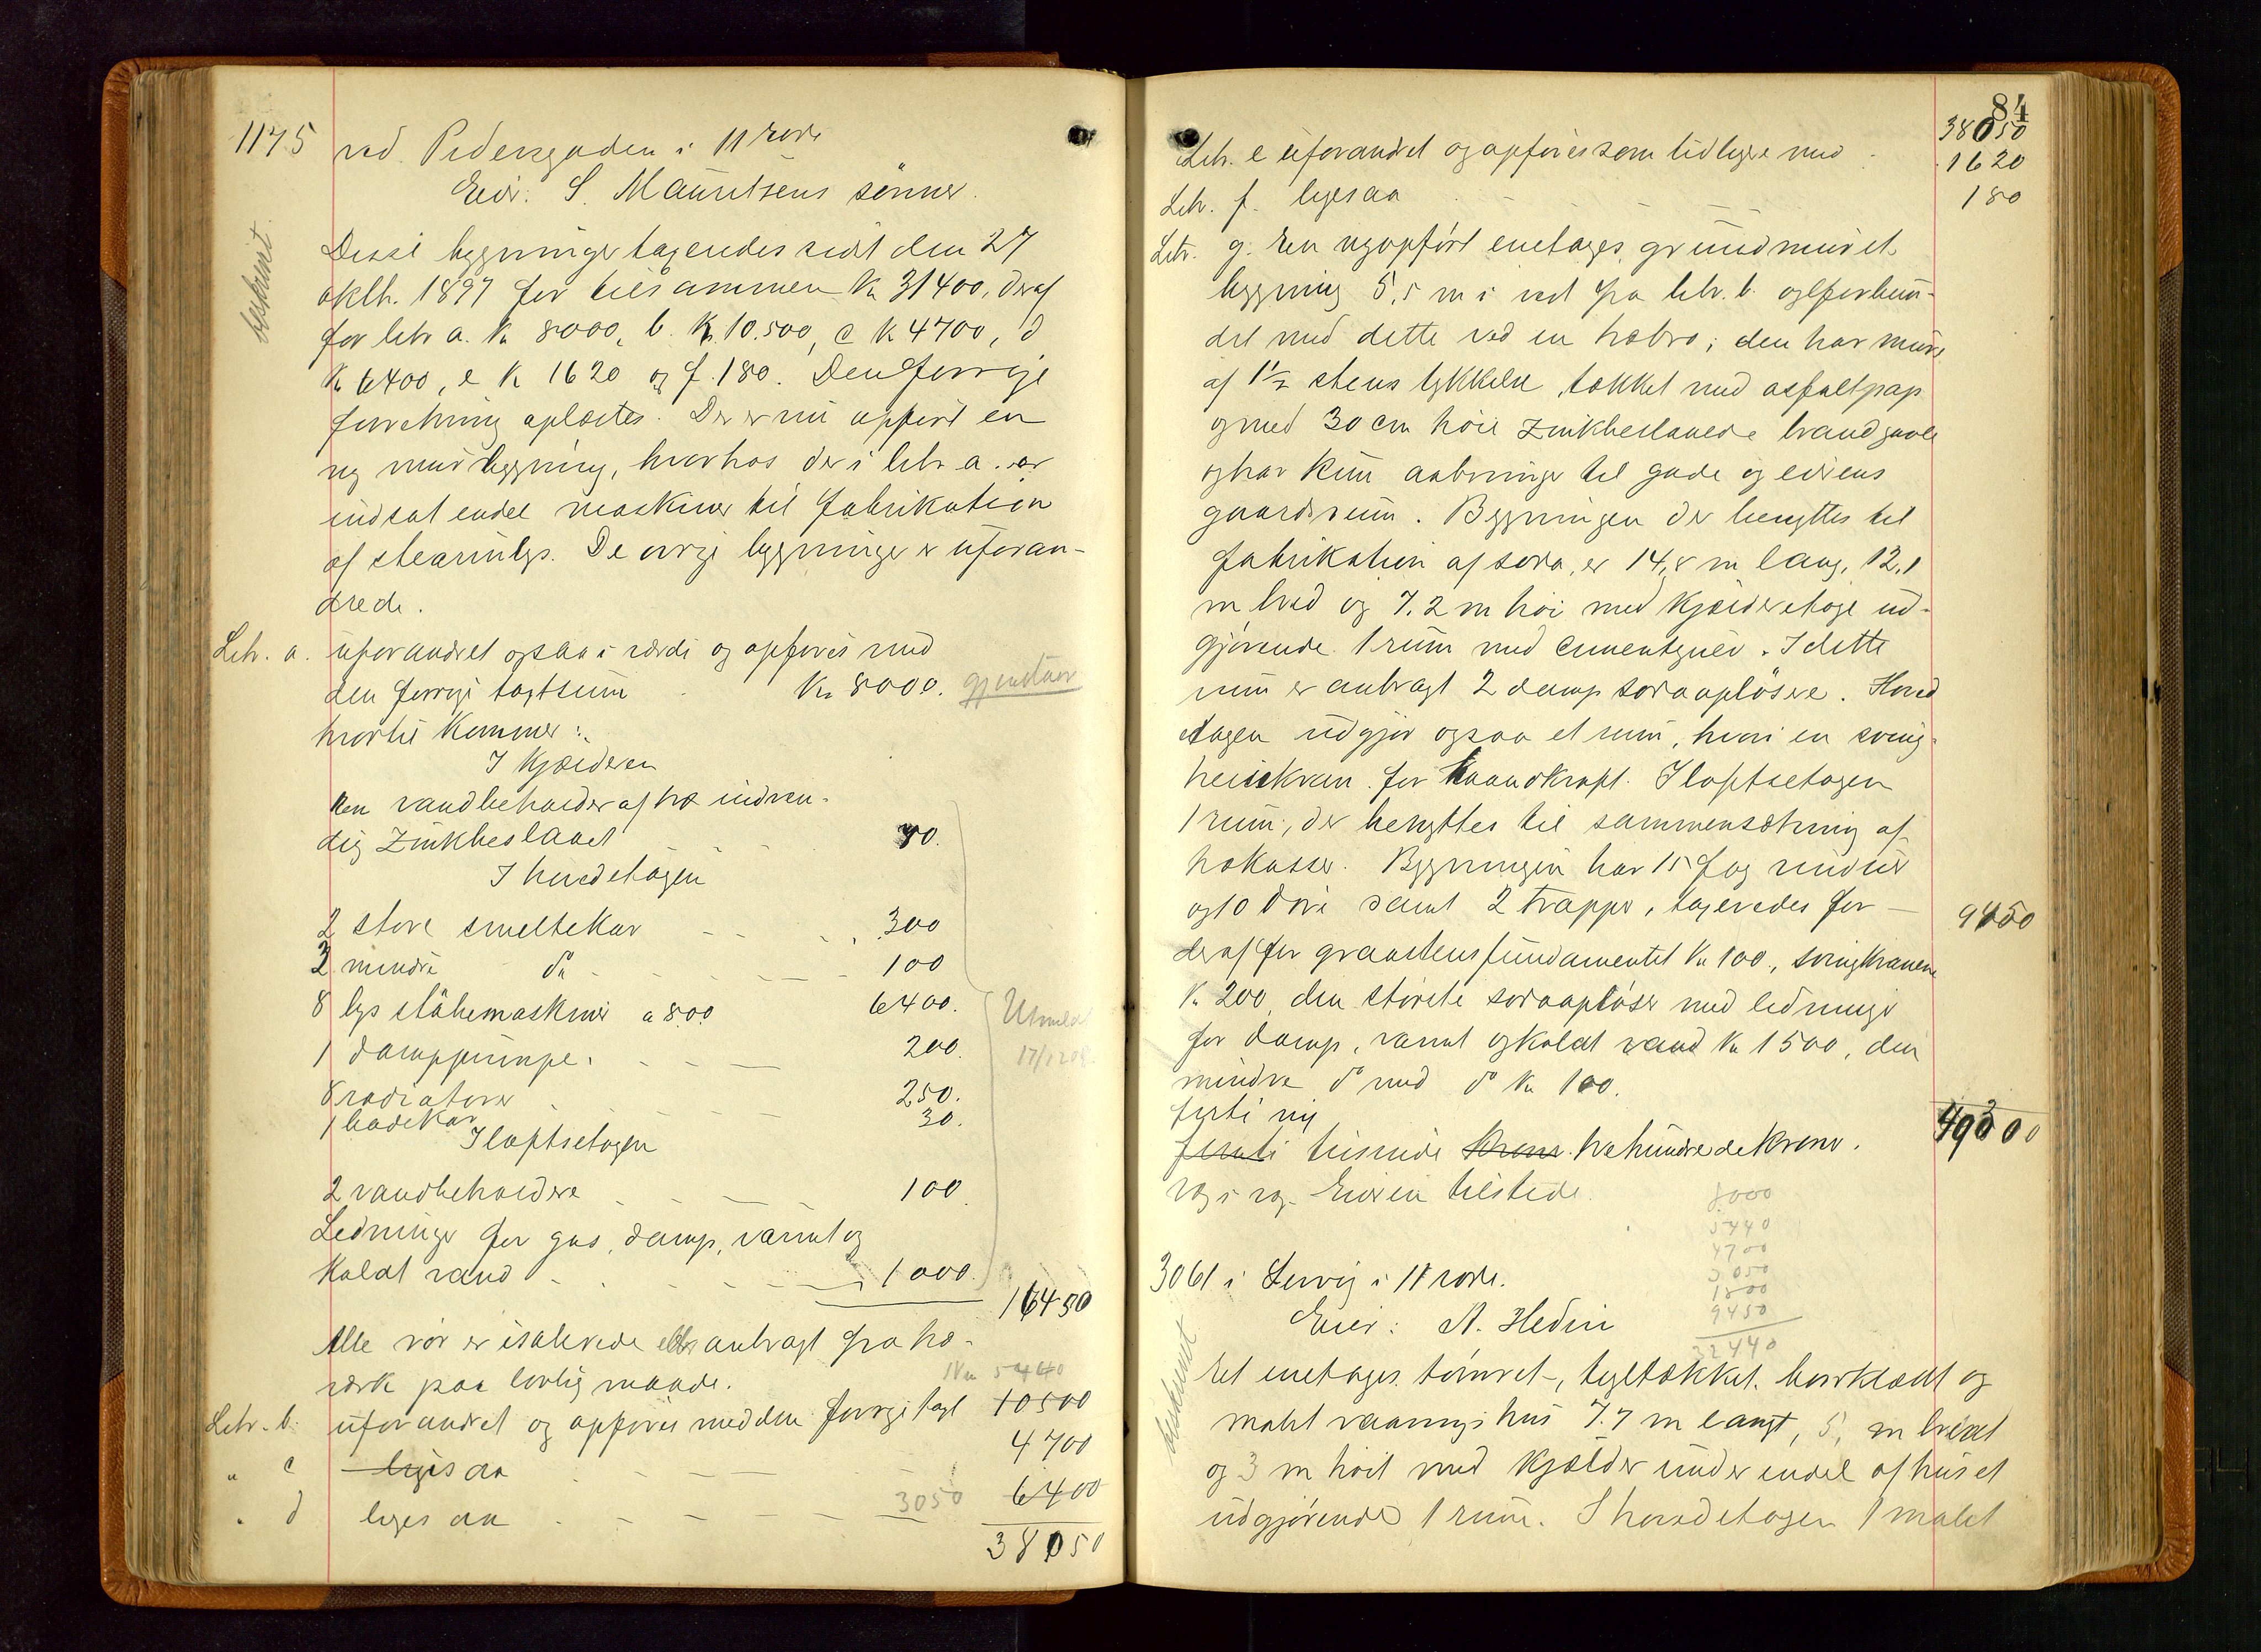 1175 ved Pedersgaden i 11 rode
Eier: S. Mauritzens sönner.
beskrevet.
Disse bygninger taxeredes sidst den 27
oktb. 1897 for tilsammen Kr 31400, deraf
for litr a. Kr 8000, b. Kr. 10.500, c Kr 4700, d
Kr 6400, e Kr 1620 og f. 180. Den forrige
forretning oplæstes. Der er nu opført en
ny murbygning, hvorhos der i litr a. er
indsat endel maskiner til fabrikation
af stearinlys. De øvrige bygninger er uforan-
drede.
Litr. a. uforandret ogsaa i værdi og opføres med
den forrige taxtsum Kr. 8000. gjenstaar
hvortil kommer:
I kjælderen
En vandbeholder af træ indven-
dig zinkbeslaaet 70.
I hovedetagen
2 store smeltekar 300
3 mindre do 100
8 lys støbemaskiner a 800 6400.
1 damppumpe. 200.
8 radiatorer 250.
1 badekar 30.
Utmeldt
17/12 08.
I loftsetagen
2 vandbeholdere 100
Ledninger for gas, damp, varmt og
koldt vand 1000.
16450
Alle rør er isolerede eller anbragt fra træ-
værk paa lovlig maade.
Kr 5440
Litr. b. uforandret og opføres med den forrige taxt 10500
" c ligesaa 4700
" d ligesaa 3050 6400
38050
84
38050
Litr. e uforandret og opføres som tidligere med 1620
Litr. f. ligesaa 180
Litr. g. En nyopført enetages grundmuret
bygning 5,5 m i vest fra litr. b. og forbun-
det med dette ved en træbro; den har mure
af 1 1/2 stens tykkelse, tækket med asfaltpap
og med 30 cm høie zinkbeslaaede brandgavle
og har kun aabninger til gade og eierens
gaardsrum. Bygningen der benyttes til
fabrikation af soda, er 14,8 m lang, 12,1
m bred og 7.2 m høi med kjælderetage ud-
gjørende 1 rum med cementgulv. I dette
rum er anbragt 2 damp sodaopløsere. Hoved
etagen udgjør ogsaa et rum, hvori en sving-
heisekran for haandkraft. I loftsetagen
1 rum, der benyttes til sammensætning af
trækasser. Bygningen har 15 fag vinduer
og 10 døre samt 2 trapper, taxeredes for — 9450
deraf for graastensfundamentet Kr 100, svingkranen
Kr. 200, den største sodaopløser med ledninger
for damp, varmt og koldt vand Kr 1500, den
mindre do med do Kr 100.
førti ni
femti tusinde Kroner trehundrede kroner. 49300
Vog i vog. Eieren tilstede.
8000
5440
4700
3050
1800
9450
32440
3061 i Lervig i 11 rode.
Eier: A. Hedin
beskrevet
Et enetages tømret-, tegltækket, bordklædt og
malet vaaningshus 7.7 m langt, 5, m bredt
og 3 m høit med kjælder under endel af huset
udgjørende 1 rum. I hovedetagen 1 malet